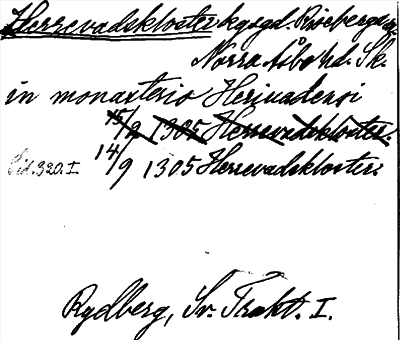 Herrevadskloster kgsgd. Riseberga sn.
Norra Åsbo hd. Sk.
in monasterio Heriuadensi
15/2 1305 Herrevadskloster.
Sid. 320. I 14/9 1305 Herrevadskloster.
Rydberg, Sv. Trakt. I.